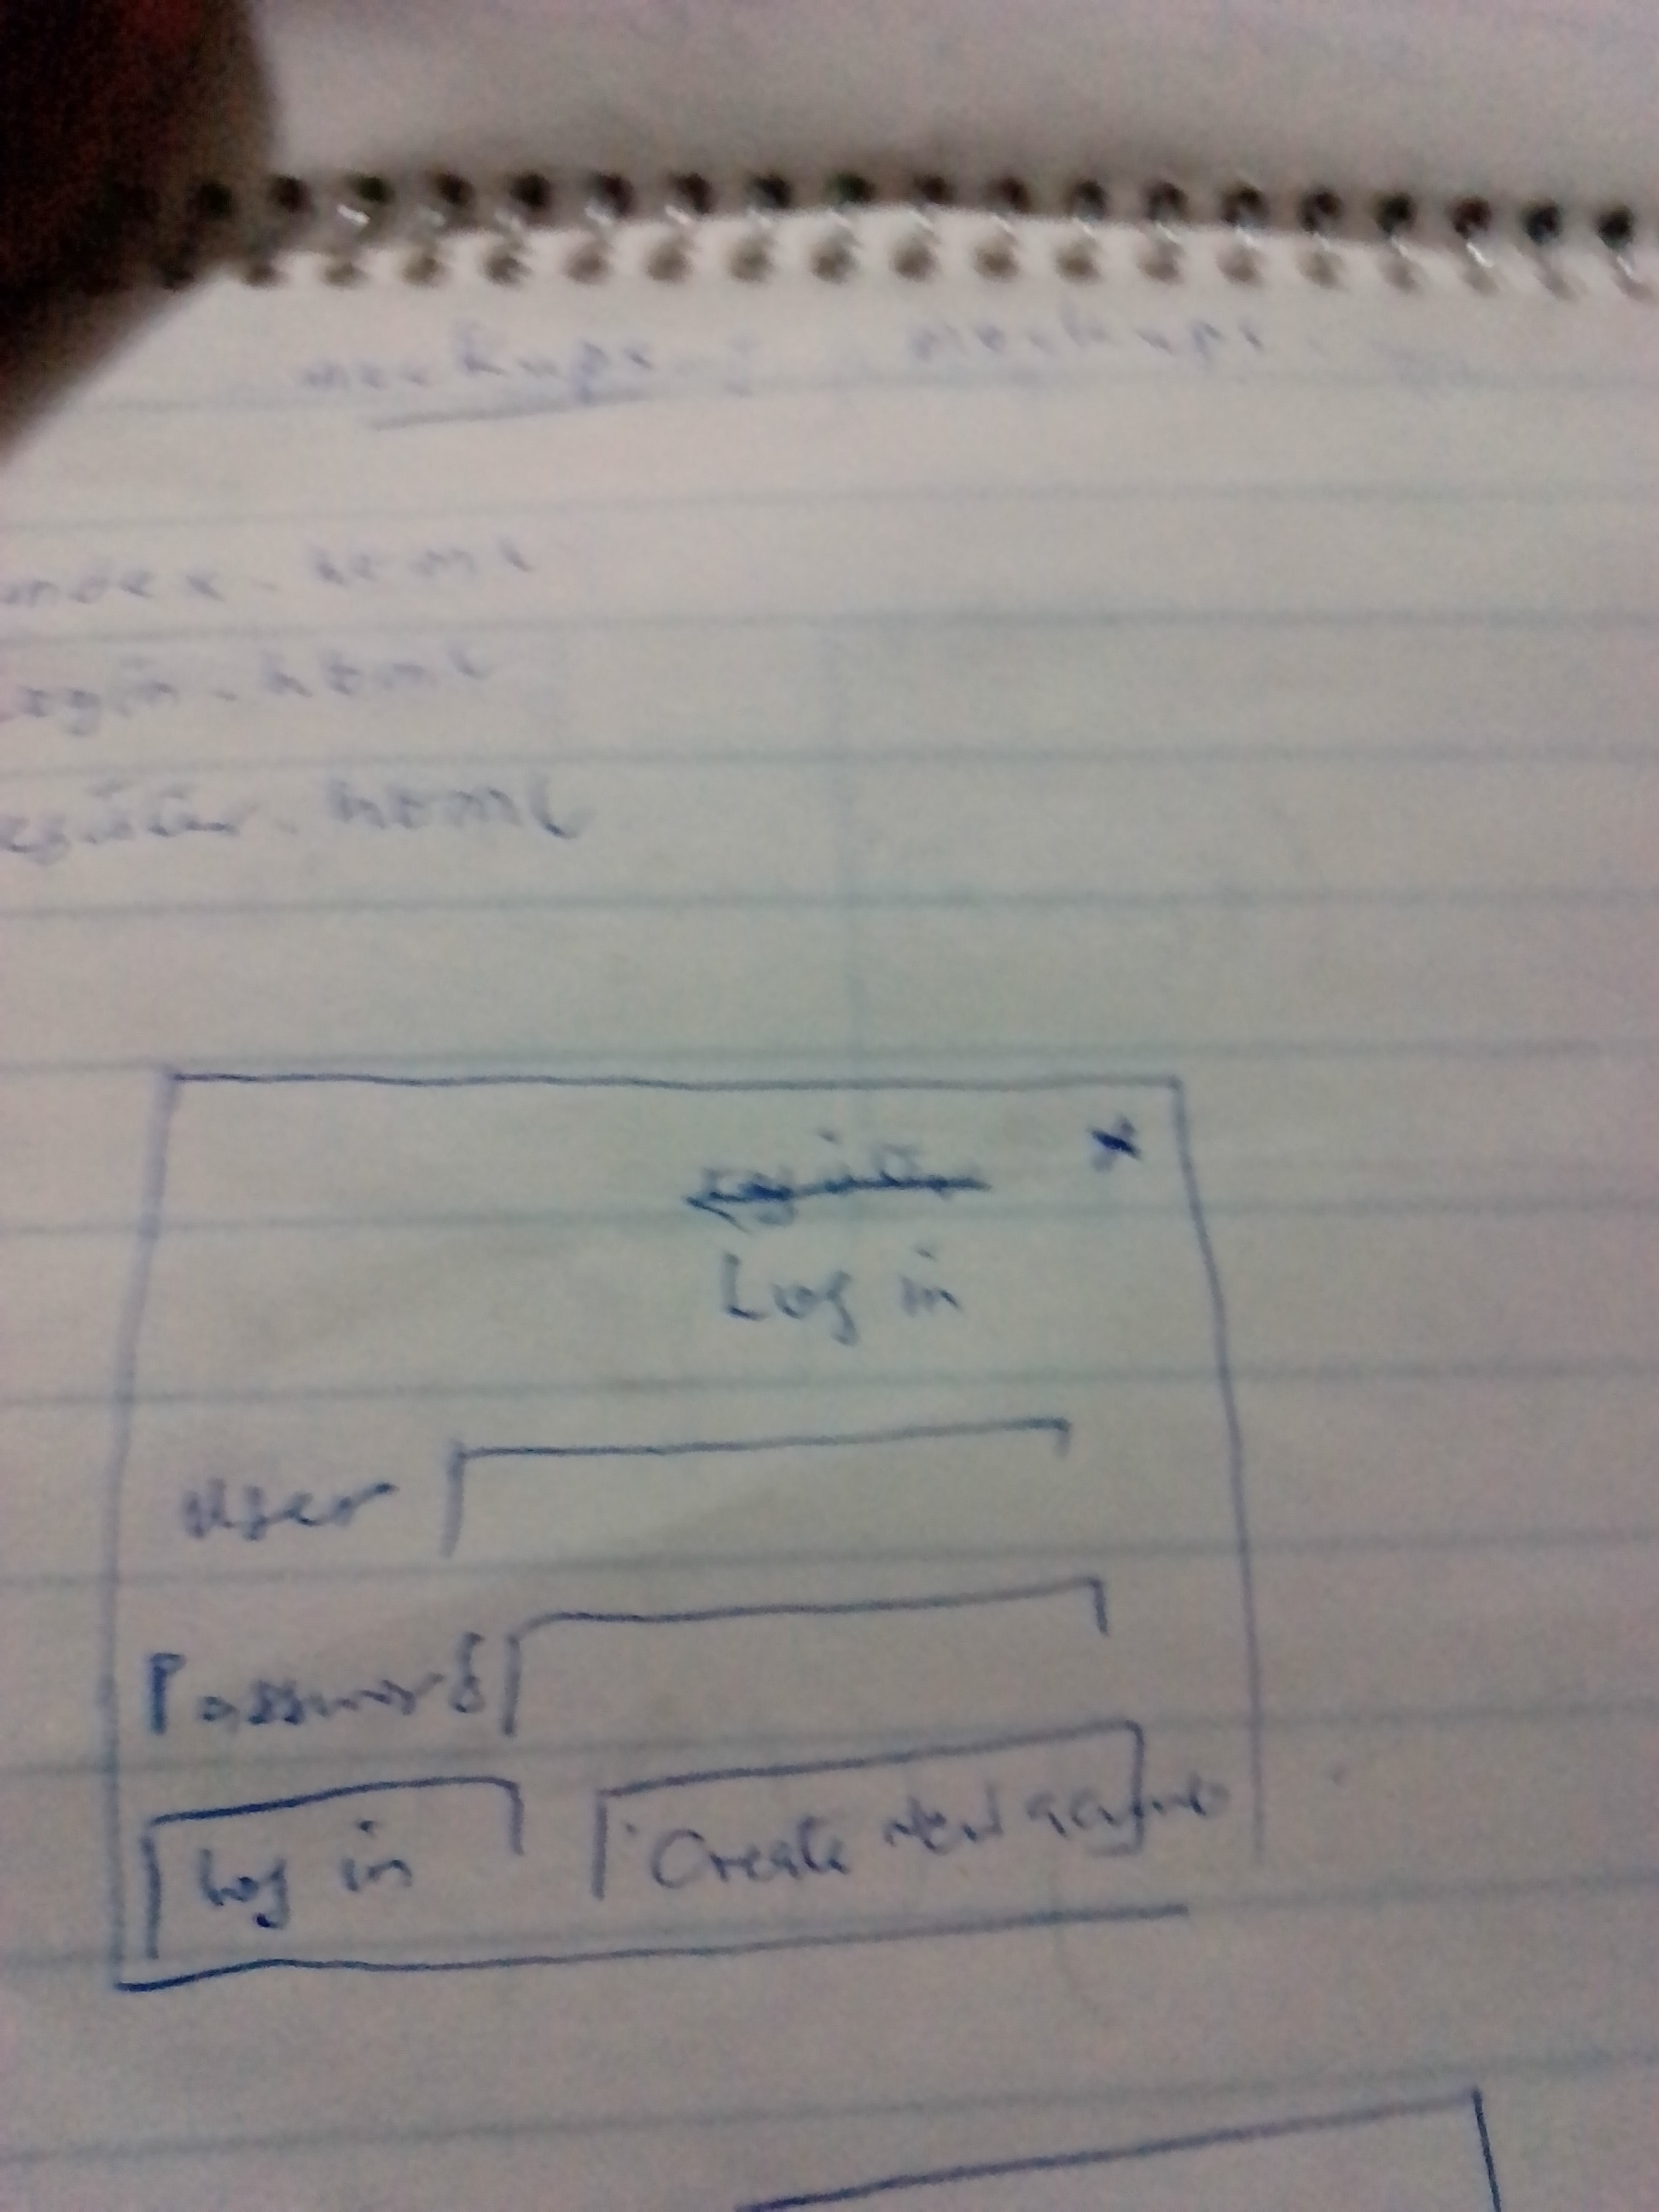 mockups : mockups
index.html
Login.html
register.html
x
register
Log in
User
Password
Log in Create New